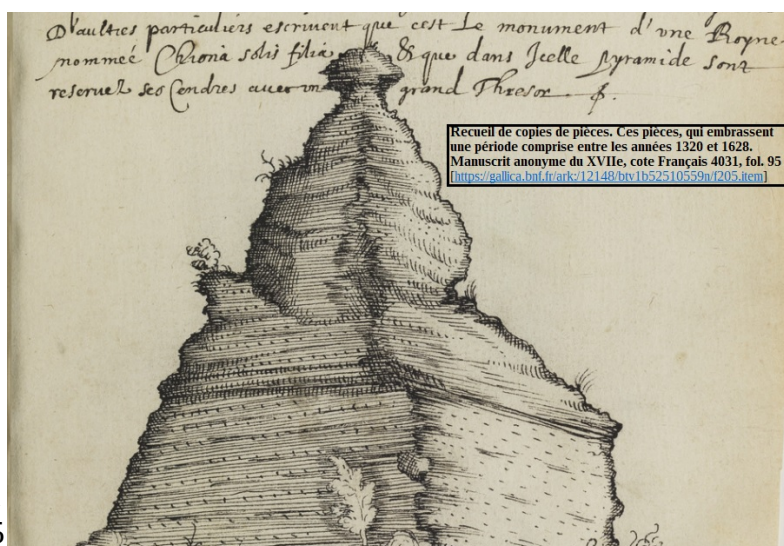 D'aultres particuliers escrivent que cest Le monument d'une Royne
nommeé Chrona solis filia & que dans Jcelle pyramide sont
reservez ses Cendres avec un grand Thresor
Recueil de copies de pièces. Ces pièces, qui embrassent
une période comprise entre les années 1320 et 1628.
Manuscrit anonyme du XVIIe, cote Français 4031, fol. 95
[https://gallica.bnf.fr/ark:/12148/btv1b52510559n/f205.item]